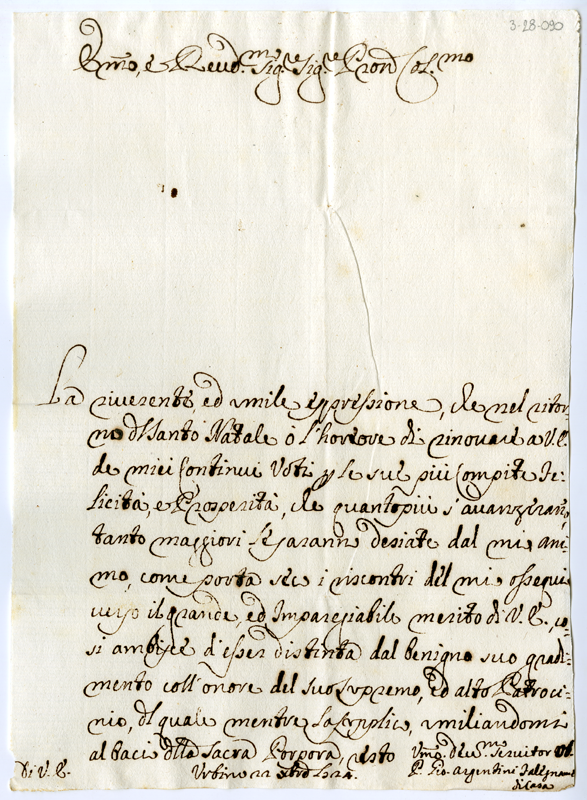 3-28-090
Em̃o, e Reud.mo Sig.e Sig.e Pron Col.mo
La riuerente, ed vmile espressione, che nel ritor
no dl Santo Natale ò l'honore di rinouare a V.E.
de miei Continui Voti p le sue più Compite Fe-
licità, e Prosperità, che quanto più s'auanziran,
tanto maggiori saran desiate dal mi ani
mo, come porta seco i riscontri del mi ossequi
verso il grande, ed Impareggiabile merito di V.E., co-
sì ambisce d'esser distinta dal benigno suo gradi-
mento coll'onore del suo supremo, ed alto Patroci-
nio, dl quale mentre la supplic, vmiliandomi
al baci dlla Sacra Porpora, resto
Di V.E.
Urbino 22
Vmo. Seruitor
P. Gio. Argentini
di Casa